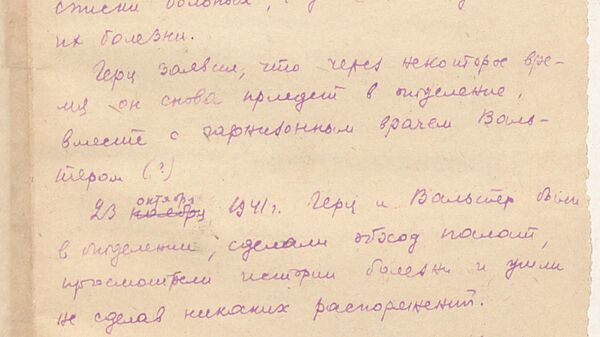 списки больных, с
их болезни.
Герц заявил, что через некоторое вре-
мя он снова приедет в отделение,
вместе с гарнизонным врачем Валь-
тером (?)
октября
23 ноября 1941 г. Герц и Вальтер были
в отделении, сделали обход палат,
просмотрели истории болезни и ушли
не сделав никаких распоряжений.